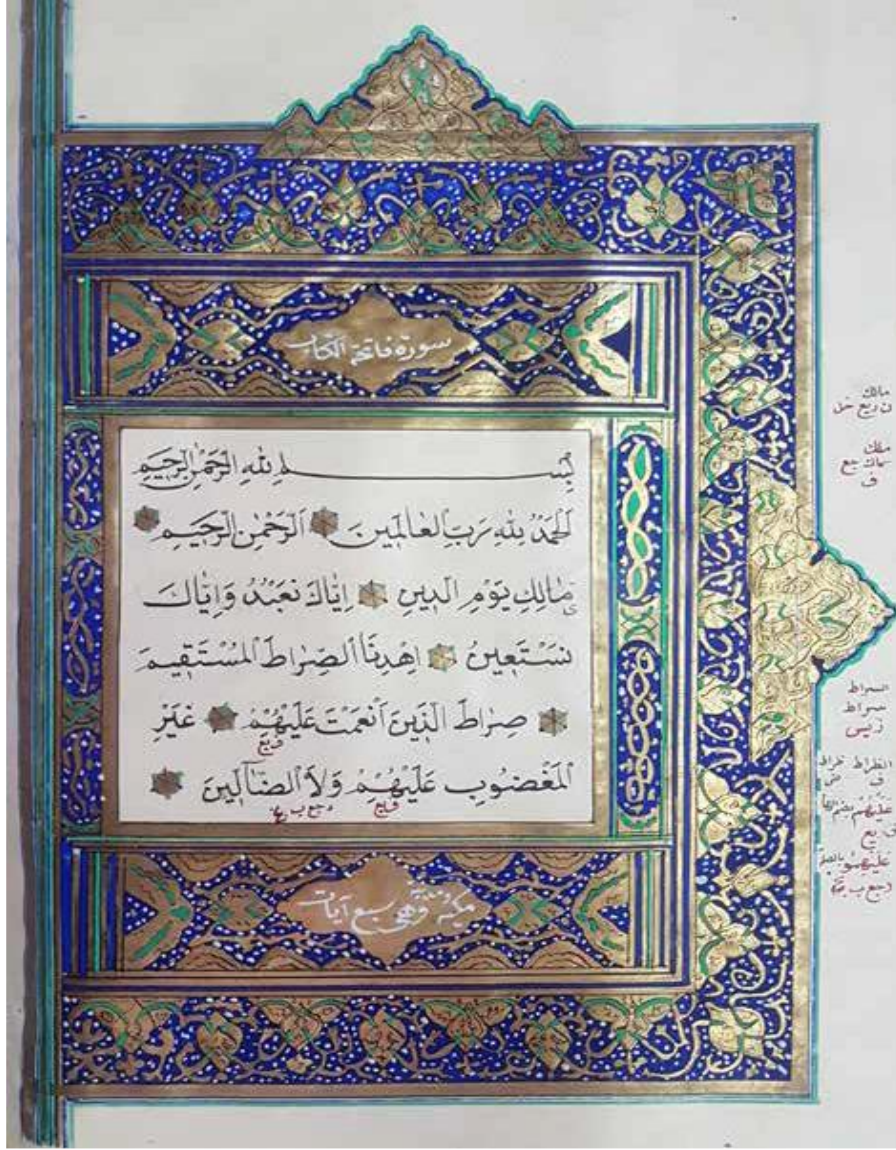 سورة فاتحة الكتاب
بِسْمِ اللهِ الرَّحْمٰنِ الرَّحِيمِ
اَلْحَمْدُ لِلّٰهِ رَبِّ الْعَالَمِينَ اَلرَّحْمٰنِ الرَّحِيمِ
مَالِكِ يَوْمِ الدِّينِ اِيَّاكَ نَعْبُدُ وَاِيَّاكَ
نَسْتَعِينُ اِهْدِنَا الصِّرَاطَ الْمُسْتَقِيمَ
صِرَاطَ الَّذِينَ اَنْعَمْتَ عَلَيْهِمْ غَيْرِ
الْمَغْضُوبِ عَلَيْهِمْ وَلاَ الضَّٓالِّينَ
وهي سبع آيات
مالك
ملك
السراط
سراط